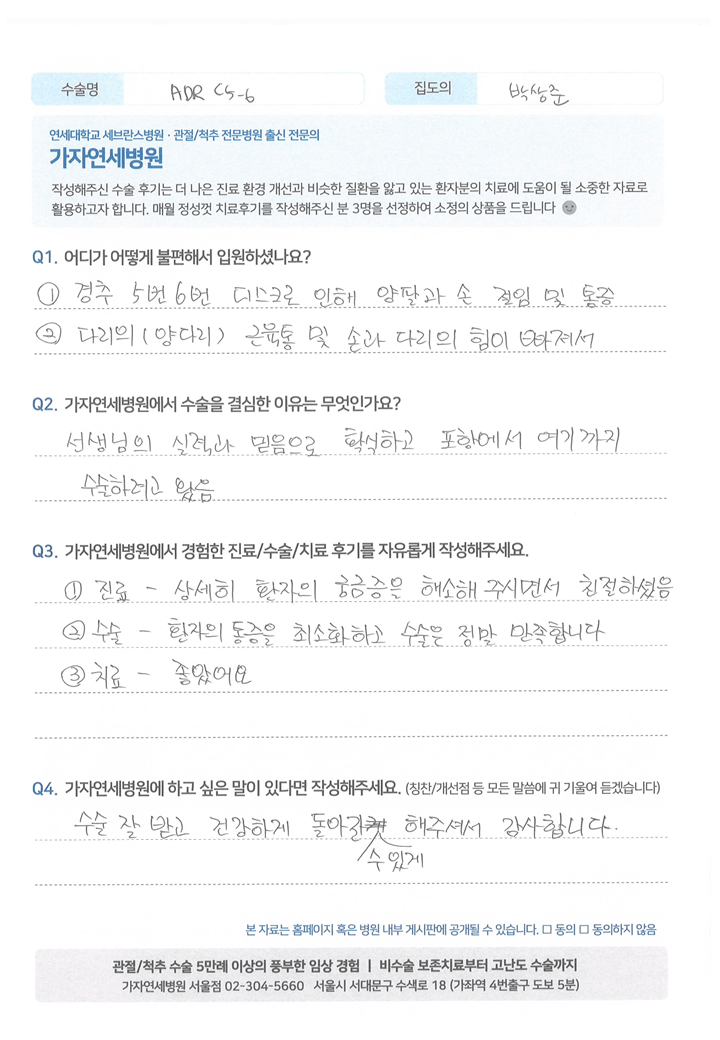 수술명 ADR C5-6 집도의 박상준
연세대학교 세브란스병원 · 관절/척추 전문병원 출신 전문의
가자연세병원
작성해주신 수술 후기는 더 나은 진료 환경 개선과 비슷한 질환을 앓고 있는 환자분의 치료에 도움이 될 소중한 자료로
활용하고자 합니다. 매월 정성껏 치료후기를 작성해주신 분 3명을 선정하여 소정의 상품을 드립니다
Q1. 어디가 어떻게 불편해서 입원하셨나요?
① 경추 5번6번 디스크로 인해 양팔과 손 절임 및 통증
② 다리의(양다리) 근육통 및 손과 다리의 힘이 빠져서
Q2. 가자연세병원에서 수술을 결심한 이유는 무엇인가요?
선생님의 실력과 믿음으로 확신하고 포항에서 여기까지
수술하려고 왔음
Q3. 가자연세병원에서 경험한 진료/수술/치료 후기를 자유롭게 작성해주세요.
① 진료 - 상세히 환자의 궁금증을 해소해 주시면서 친절하셨음
② 수술 - 환자의 통증을 최소화하고 수술은 정말 만족합니다
③ 치료 - 좋았어요
Q4. 가자연세병원에 하고 싶은 말이 있다면 작성해주세요. (칭찬/개선점 등 모든 말씀에 귀 기울여 듣겠습니다)
수술 잘 받고 건강하게 돌아갈 수 있게 해주셔서 감사합니다.
본 자료는 홈페이지 혹은 병원 내부 게시판에 공개될 수 있습니다. □ 동의 □ 동의하지 않음
관절/척추 수술 5만례 이상의 풍부한 임상 경험 | 비수술 보존치료부터 고난도 수술까지
가자연세병원 서울점 02-304-5660 서울시 서대문구 수색로 18 (가좌역 4번출구 도보 5분)